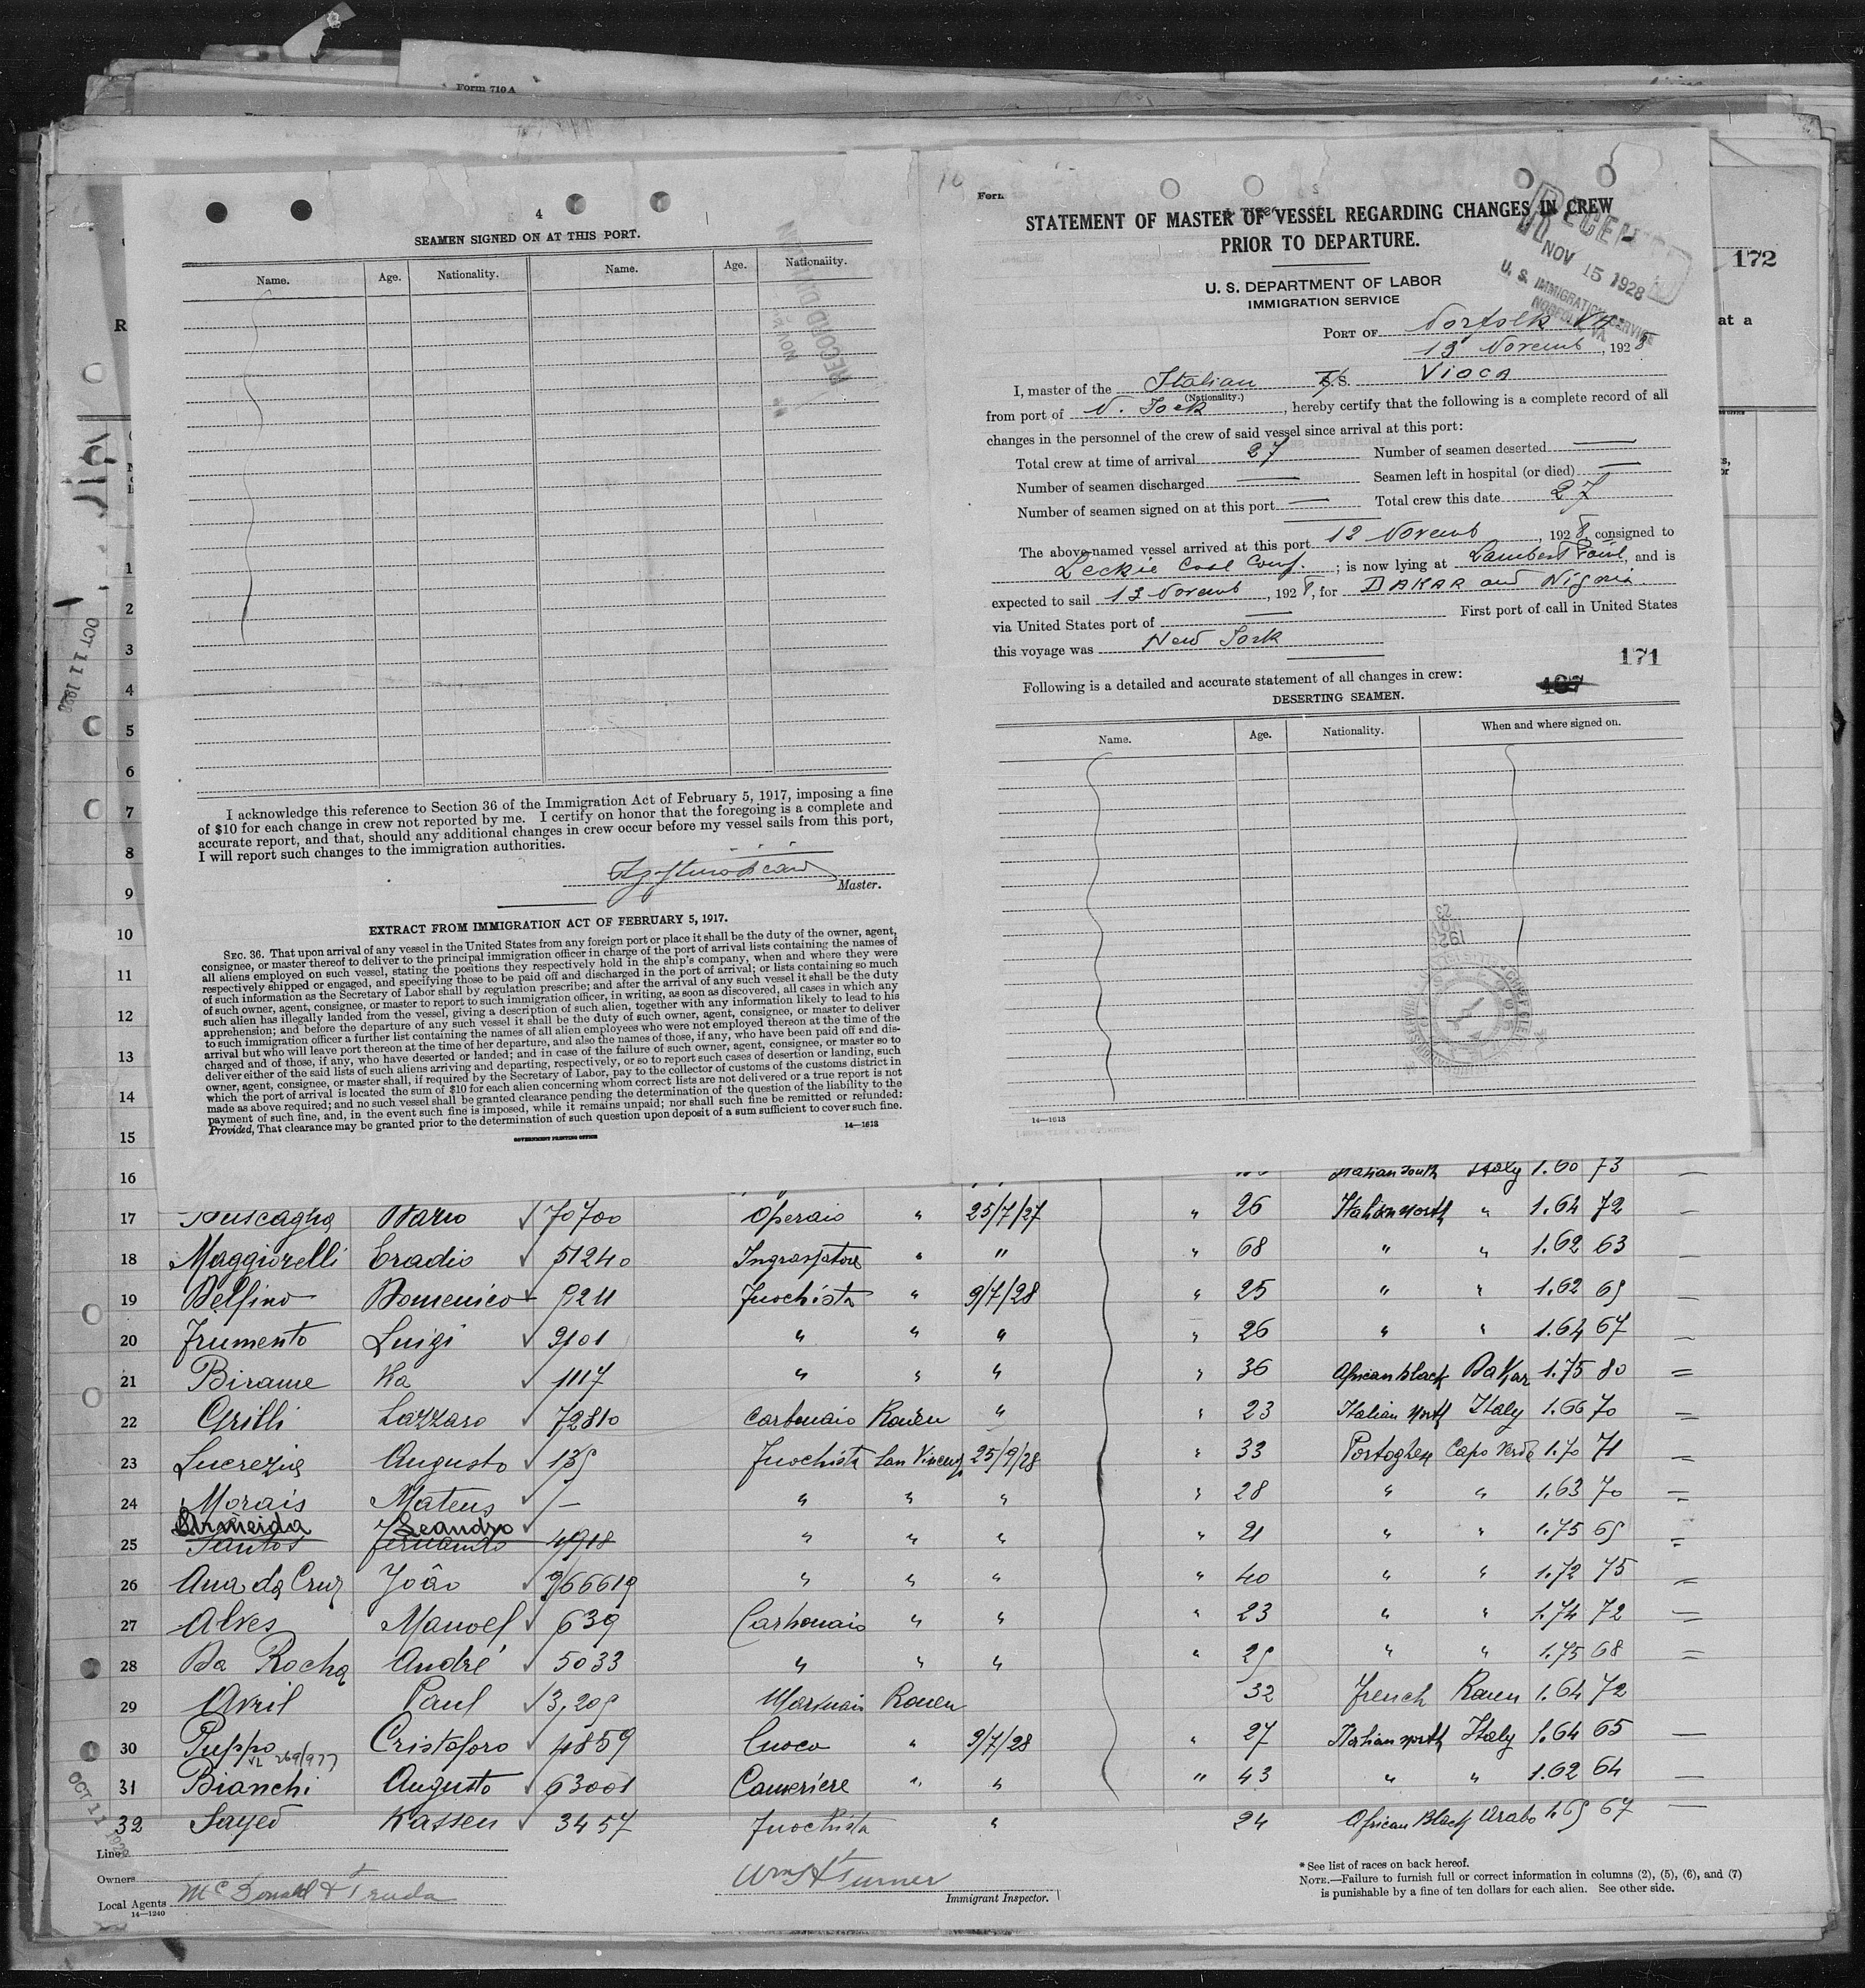 Form 710A
4
SEAMEN SIGNED ON AT THIS PORT.
Name. Age. Nationality. Name. Age. Nationality.
I acknowledge this reference to Section 36 of the Immigration Act of February 5, 1917, imposing a fine
of $10 for each change in crew not reported by me. I certify on honor that the foregoing is a complete and
accurate report, and that, should any additional changes in crew occur before my vessel sails from this port,
I will report such changes to the immigration authorities.
Master.
EXTRACT FROM IMMIGRATION ACT OF FEBRUARY 5, 1917.
SEC. 36. That upon arrival of any vessel in the United States from any foreign port or place it shall be the duty of the owner, agent,
consignee, or master thereof to deliver to the principal immigration officer in charge of the port of arrival lists containing the names of
all aliens employed on such vessel, stating the positions they respectively hold in the ship's company, when and where they were
respectively shipped or engaged, and specifying those to be paid off and discharged in the port of arrival; or lists containing so much
of such information as the Secretary of Labor shall by regulation prescribe; and after the arrival of any such vessel it shall be the duty
of such owner, agent, consignee, or master to report to such immigration officer, in writing, as soon as discovered, all cases in which any
such alien has illegally landed from the vessel, giving a description of such alien, together with any information likely to lead to his
apprehension; and before the departure of any such vessel it shall be the duty of such owner, agent, consignee, or master to deliver
to such immigration officer a further list containing the names of all alien employees who were not employed thereon at the time of the
arrival but who will leave port thereon at the time of her departure, and also the names of those, if any, who have been paid off and dis-
charged and of those, if any, who have deserted or landed; and in case of the failure of such owner, agent, consignee, or master so to
deliver either of the said lists of such aliens arriving and departing, respectively, or so to report such cases of desertion or landing, such
owner, agent, consignee, or master shall, if required by the Secretary of Labor, pay to the collector of customs of the customs district in
which the port of arrival is located the sum of $10 for each alien concerning whom correct lists are not delivered or a true report is not
made as above required; and no such vessel shall be granted clearance pending the determination of the question of the liability to the
payment of such fine, and, in the event such fine is imposed, while it remains unpaid; nor shall such fine be remitted or refunded:
Provided, That clearance may be granted prior to the determination of such question upon deposit of a sum sufficient to cover such fine.
GOVERNMENT PRINTING OFFICE 14—1613
STATEMENT OF MASTER OF VESSEL REGARDING CHANGES IN CREW
PRIOR TO DEPARTURE.
U. S. DEPARTMENT OF LABOR
IMMIGRATION SERVICE
NOV 15 1928
U. S. IMMIGRATION SERVICE
NORFOLK, VA
172
PORT OF Norfolk Va
13 Novemb, 1928
I, master of the Italian S.S. Vioca
(Nationality.)
from port of N. York, hereby certify that the following is a complete record of all
changes in the personnel of the crew of said vessel since arrival at this port:
Total crew at time of arrival 27 Number of seamen deserted —
Number of seamen discharged — Seamen left in hospital (or died) —
Number of seamen signed on at this port — Total crew this date 27
The above-named vessel arrived at this port 12 Novemb, 1928, consigned to
Leckie Coal Comp. ; is now lying at Lambert Point, and is
expected to sail 13 Novemb, 1928, for DAKAR and Nigeria
via United States port of — First port of call in United States
this voyage was New York
171
Following is a detailed and accurate statement of all changes in crew:
DESERTING SEAMEN.
Name. Age. Nationality. When and where signed on.
14—1613
OCT 11 1928
1
2
3
4
5
6
7
8
9
10
11
12
13
14
15
16 Italian South Italy 1.60 73
17 Dario 70700 Operaio " 25/7/27 " 26 Italian North " 1.64 72
18 Maggiorelli Eradio 51240 Ingrassatore " " " 68 " " 1.62 63
19 Delfino Domenico 9211 Fuochista " 9/7/28 " 25 " " 1.62 65
20 Frumento Luigi 9101 " " " " 26 " " 1.64 67
21 Birame Ka 1117 " " " " 36 African black Dakar 1.75 80
22 Grilli Lazzaro 72810 Carbonaio Rouen " " 23 Italian North Italy 1.66 70
23 Lucrezia Augusto 135 Fuochista San Vincenz 25/9/28 " 33 Portoghese Capo Verde 1.70 71
24 Morais Mateus — " " " " 28 " " 1.63 70
Almeida Leandro
25 Santos Fernando 4918 " " " " 21 " " 1.75 65
26 Ana da Cruz João 9/66619 " " " " 40 " " 1.72 75
27 Alves Manoel 639 Carbonaio " " " 23 " " 1.74 72
28 Da Rocha André 5033 " " " " 25 " " 1.75 68
29 Avril Paul 3,205 Rouen 32 French Rouen 1.64 72
30 Puppo Cristoforo 4859 Cuoco " 9/7/28 " 27 Italian north Italy 1.64 65
31 Bianchi Augusto 63001 Cameriere " " " 43 " " 1.62 64
32 Sayed Kassen 3457 Fuochista " 24 African Black Arabo 1.65 67
Line
Owners
Local Agents McDonald & Truda
14—1240
Wm H Turner
Immigrant Inspector.
* See list of races on back hereof.
NOTE.—Failure to furnish full or correct information in columns (2), (5), (6), and (7)
is punishable by a fine of ten dollars for each alien. See other side.